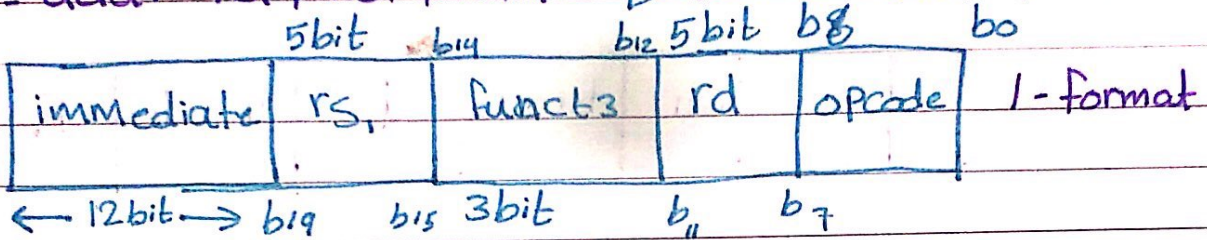 5bit b14 b12 5bit b8 b0
immediate rs1 funct3 rd opcode I-format
← 12bit → b19 b15 3bit b11 b7